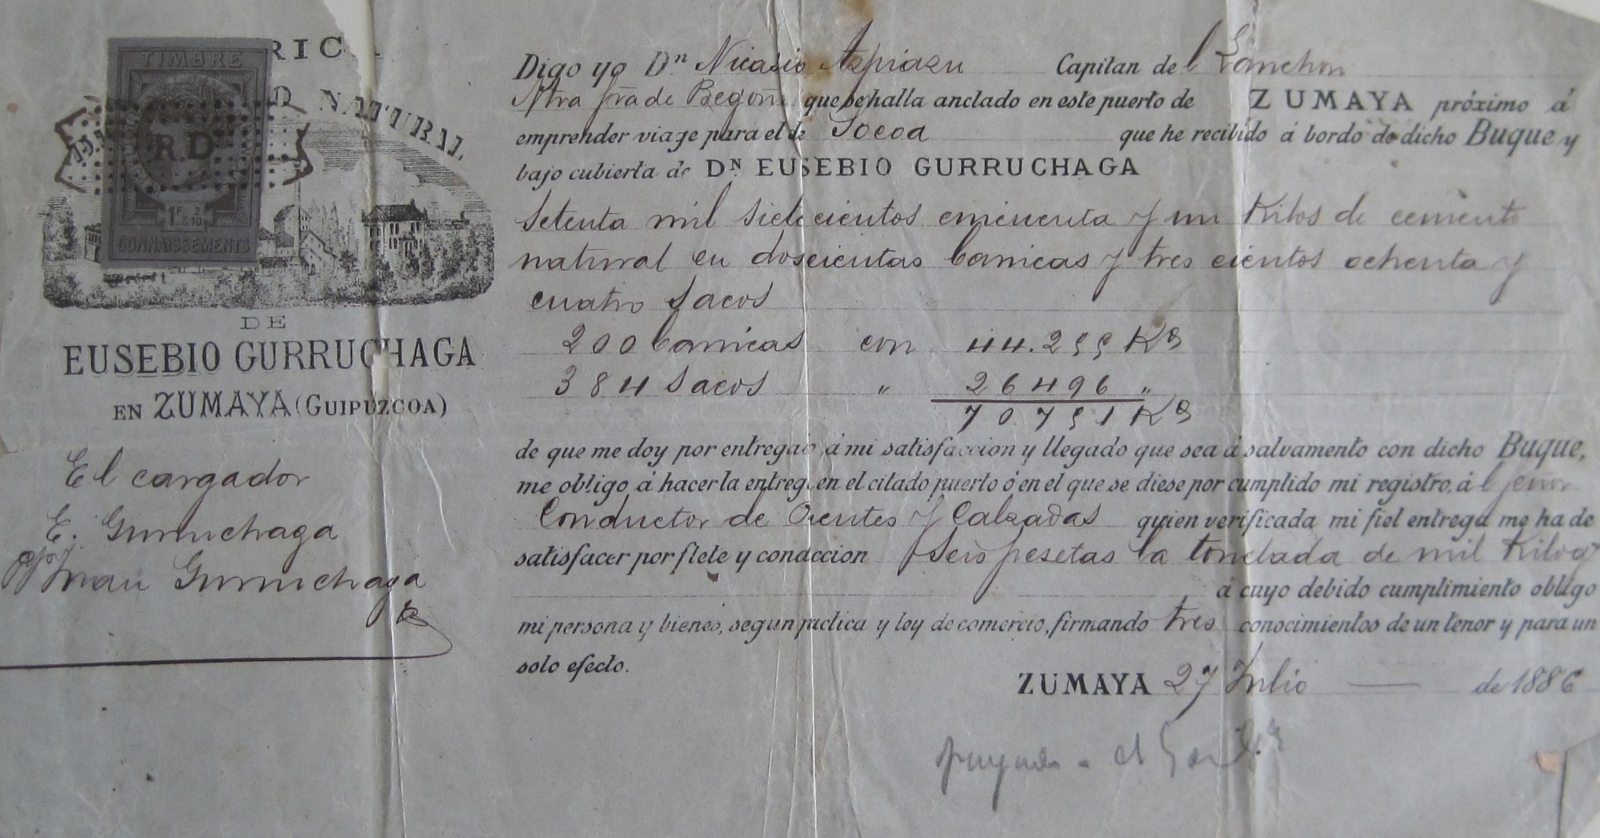 TIMBRE
RD
CONNAISSEMENTS
D NATURAL
DE
EUSEBIO GURRUCHAGA
EN ZUMAYA (GUIPUZCOA)
El cargador
E. Gurruchaga
Juan Gurruchaga
Digo yo Dn Nicasio Azpiazu Capitan del Lanchon
Ntra Sra de Begoña que se halla anclado en este puerto de ZUMAYA próximo á
emprender viage para el de Socoa que he recibido á bordo de dicho Buque y
bajo cubierta de DN EUSEBIO GURRUCHAGA
Setenta mil sietecientos cincuenta y un Kilos de cemento
natural en doscientas barricas y tres cientos ochenta y
cuatro sacos
200 barricas con 44.255 Ks
384 Sacos " 26496 "
70751 Ks
de que me doy por entregado á mi satisfaccion y llegado que sea á salvamento con dicho Buque,
me obligo á hacer la entrega en el citado puerto ó en el que se diese por cumplido mi registro, á l Señor
Conductor de Puentes y Calzadas quien verificada mi fiel entrega me ha de
satisfacer por flete y condccion Seis pesetas la tonelada de mil Kilogs
á cuyo debido cumplimiento obligo
mi persona y bienes, segun pactica y ley de comercio, firmando tres conocimientos de un tenor y para un
solo efecto.
ZUMAYA 27 Julio de 1886